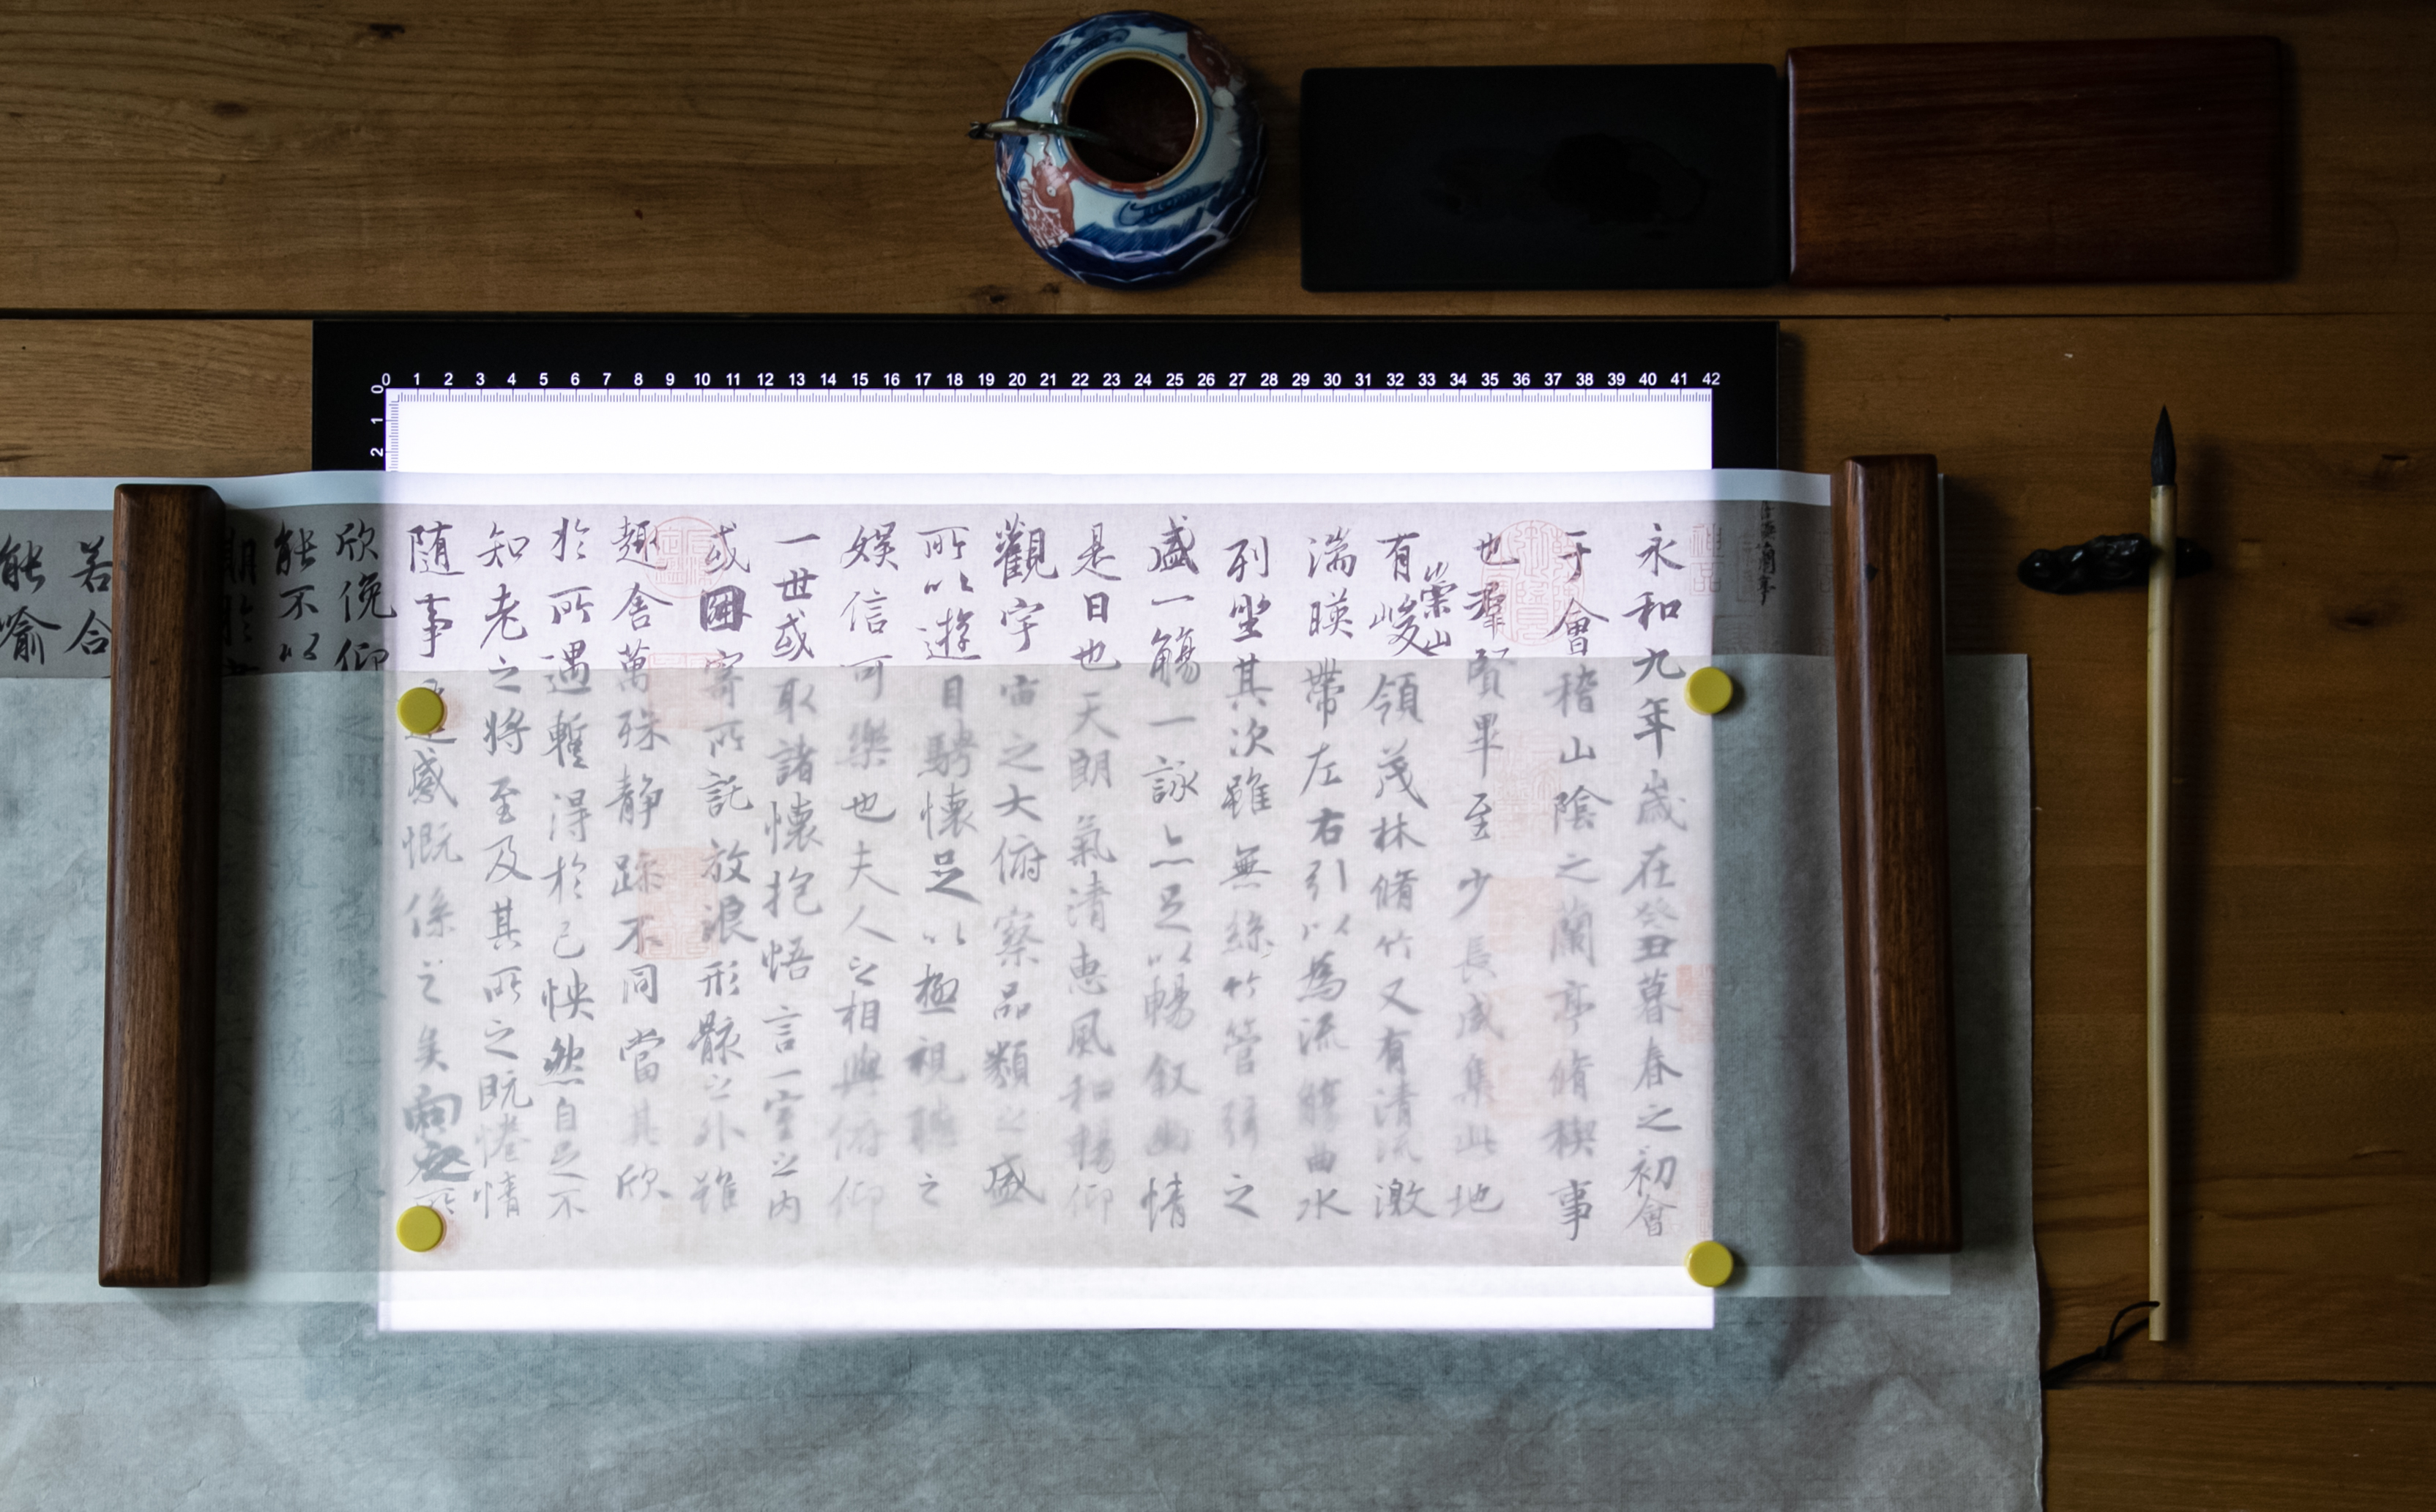 0 1 2 3 4 5 6 7 8 9 10 11 12 13 14 15 16 17 18 19 20 21 22 23 24 25 26 27 28 29 30 31 32 33 34 35 36 37 38 39 40 41 42
0 1 2
永和九年歲在癸丑暮春之初會
于會稽山陰之蘭亭脩稧事
也羣賢畢至少長咸集此地
有崇山峻領茂林脩竹又有清流激
湍暎帶左右引以為流觴曲水
列坐其次雖無絲竹管弦之
盛一觴一詠亦足以暢敘幽情
是日也天朗氣清惠風和暢仰
觀宇宙之大俯察品類之盛
所以遊目騁懷足以極視聽之
娛信可樂也夫人之相與俯仰
一世或取諸懷抱悟言一室之內
或因寄所託放浪形骸之外雖
趣舍萬殊靜躁不同當其欣
於所遇暫得於己怏然自足不
知老之將至及其所之既惓情
隨事感慨係之矣向之所
欣俛仰
能不以
期於
若合
能喻